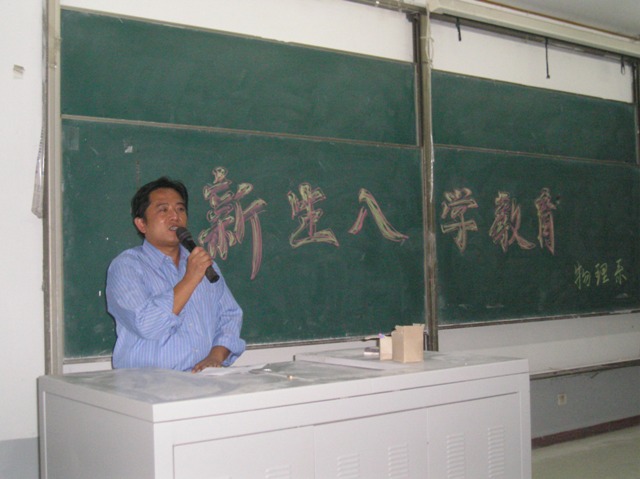 新生入学教育
物理系